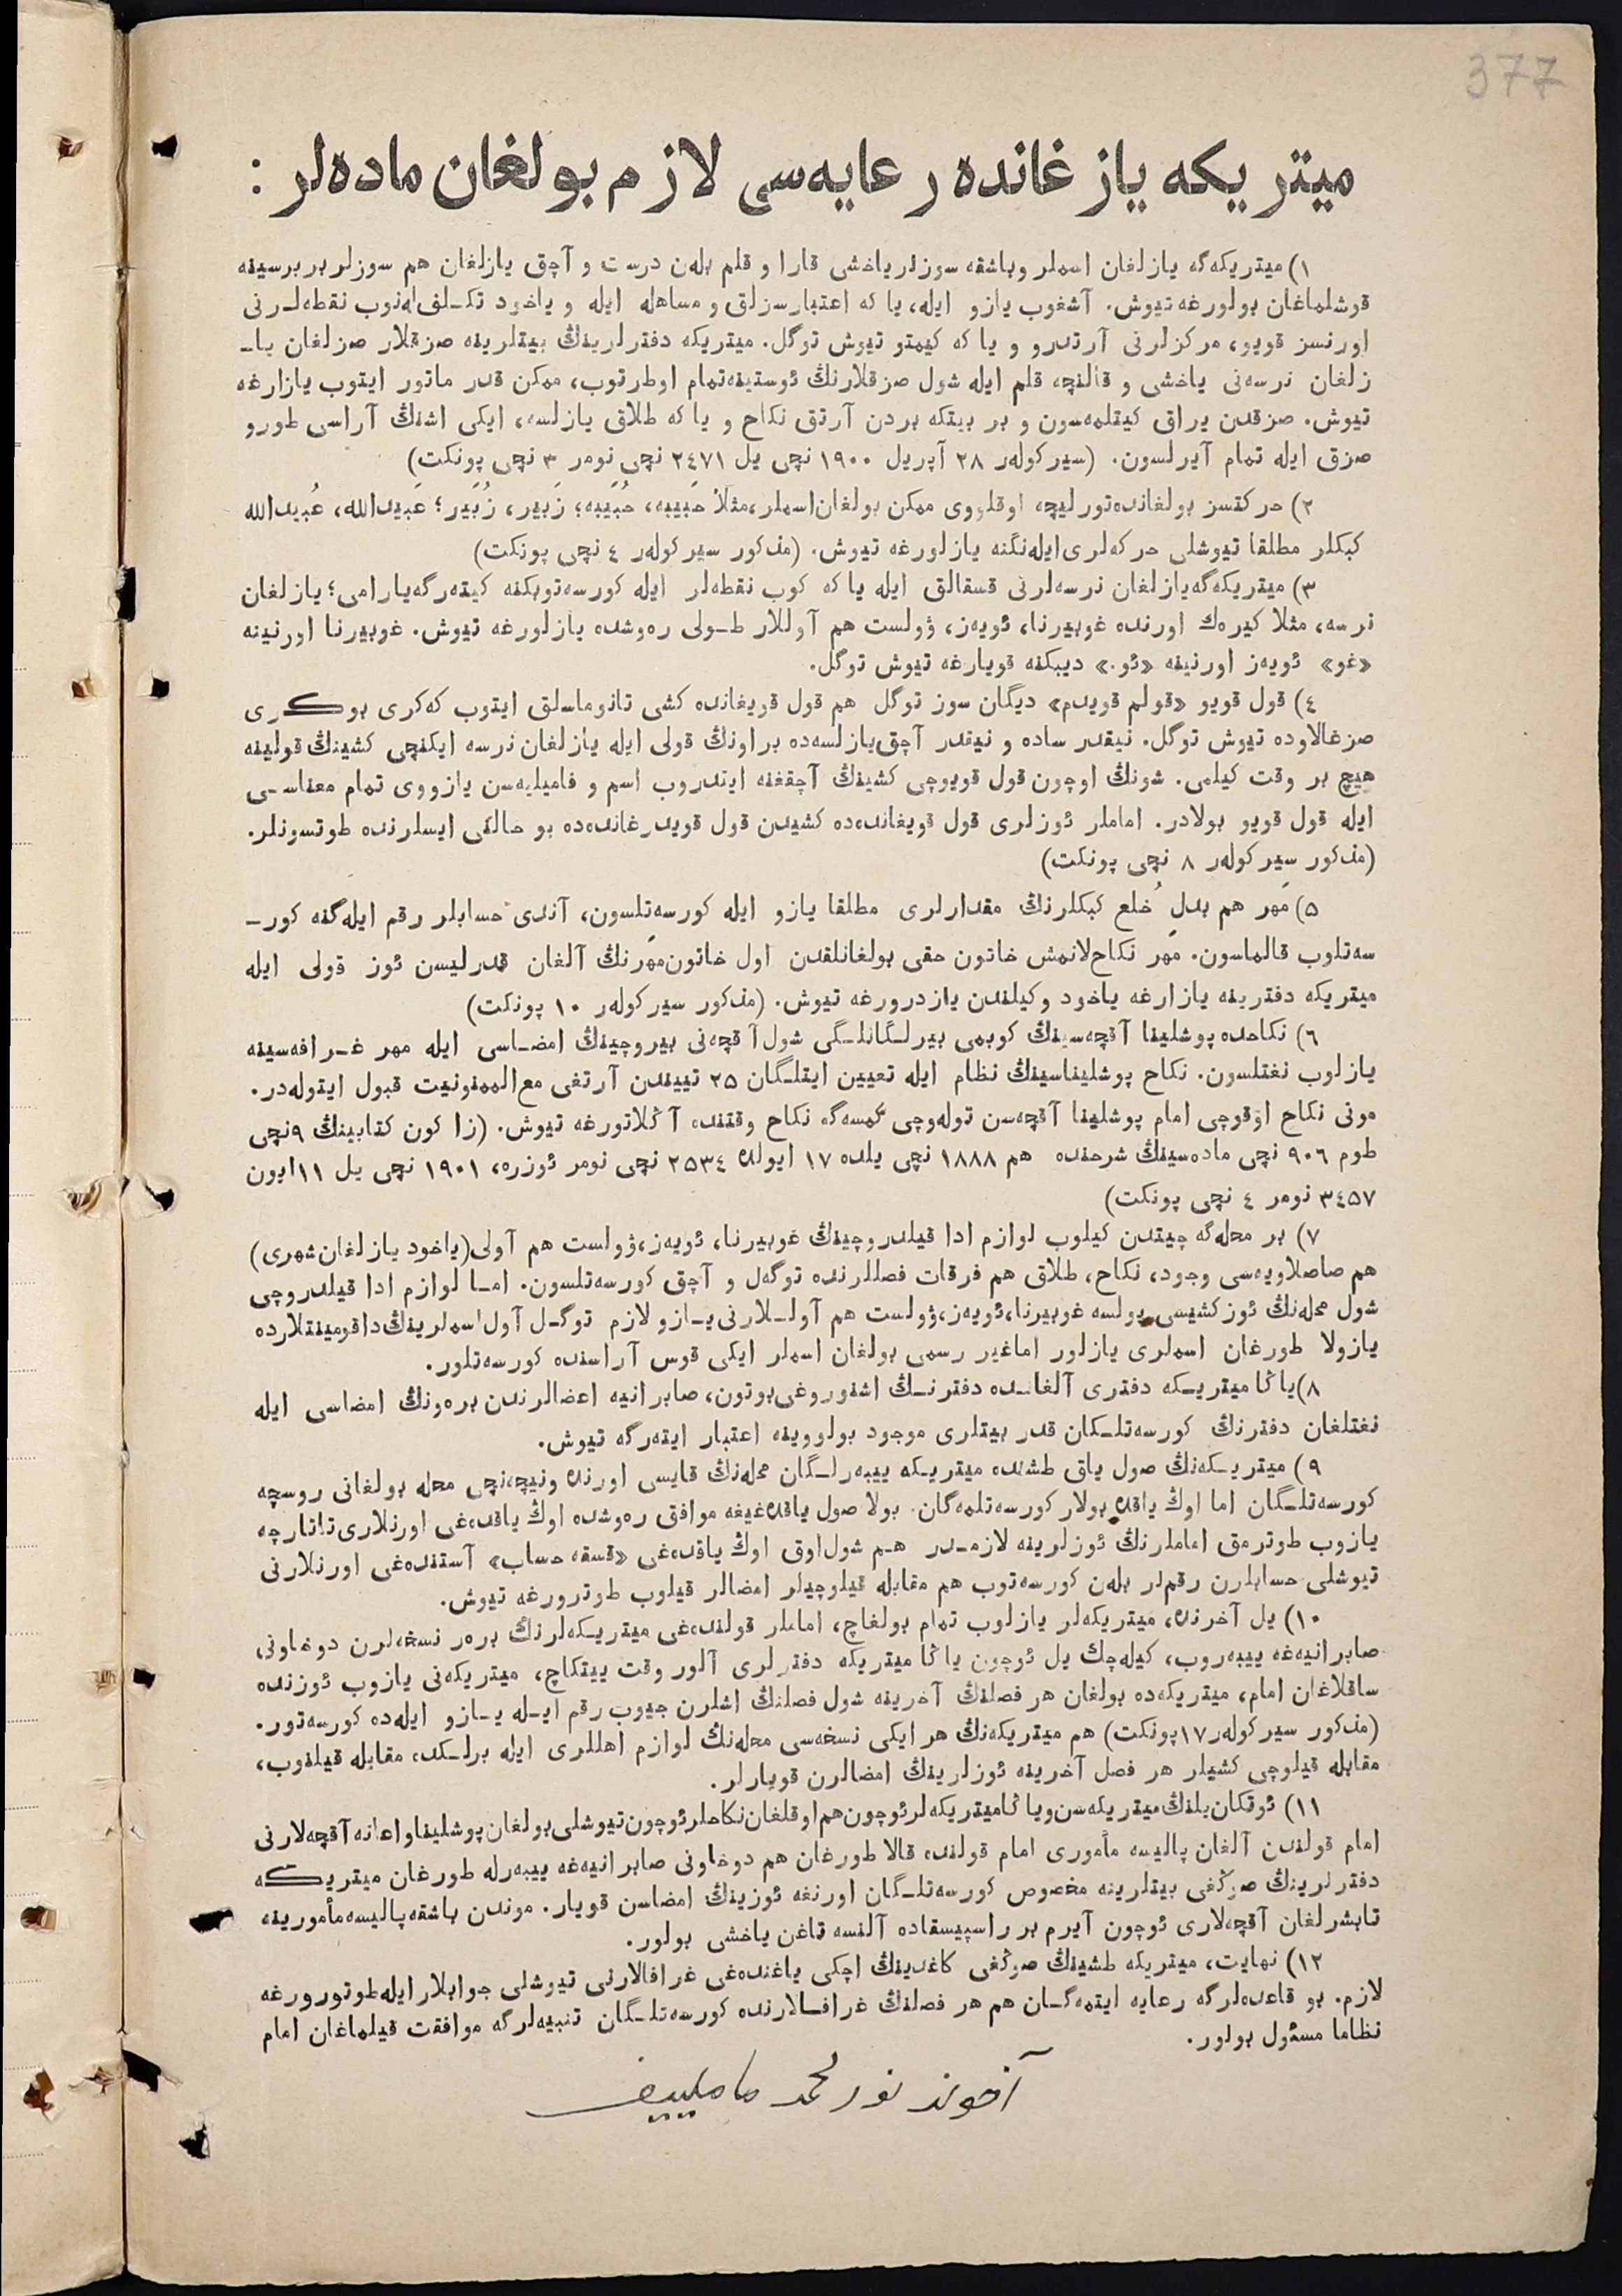 377
میتریكه یازغانده رعایه‌سی لازم بولغان ماده‌لر :
١) میتریكه‌گه یازلغان اسملر وباشقه سوزلر یاخشی قارا و قلم بله‌ن درست و آچق یازلغان هم سوزلر بربرسینه
قوشلماغان بولورغه تیوش. آشغوب یازو ایله، یا كه اعتبارسزلق و مساهله ایله و یاخود تكـلف‌له‌نوب نقطه‌لـرنی
اورنسز قویو، مركزلرنی آرتدرو و یا كه كیمتو تیوش توگل. میتریكه دفترلرینڭ بیتلرینه صزقلار صزلغان یا‌ـ
زلغان نرسه‌نی یاخشی و قالنچه قلم ایله شول صزقلارنڭ ئوستینه‌تمام اوطرتوب، ممكن قدر ماتور ایتوب یازارغه
تیوش. صزقدن یراق كیتلمه‌سون و بر بیتكه بردن آرتق نكاح و یا كه طلاق یازلسه، ایكی اشنڭ آراسی طورو
صزق ایله تمام آیرلسون. (سیركوله‌ر ٢٨ آپریل ١٩٠٠ نچی یل ٢٤٧١ نچی نومر ٣ نچی پونكت)
٢) حركتسز بولغانده‌تورلیچه اوقلووی ممكن بولغان‌اسملر،مثلا حَبیبه، حُبَیبه؛ زَبیر، زُبَیر؛ عَبیدالله، عُبیدالله
كبكلر مطلقا تیوشلی حركه‌لری‌ایله‌نگنه یازلورغه تیوش. (مذكور سیركوله‌ر ٤ نچی پونكت)
٣) میتریكه‌گه‌یازلغان نرسه‌لرنی قسقالق ایله یا كه كوب نقطه‌لر ایله كورسه‌توبكنه كیته‌رگه‌یارامی؛ یازلغان
نرسه، مثلا كیره‌ك اورنده غوبیرنا، ئویه‌ز، ۋولست هم آوللار طـولی ره‌وشده یازلورغه تیوش. غوبیرنا اورنینه
«غو» ئویه‌ز اورنینه «ئو.» دیبكنه قویارغه تیوش توگل.
٤) قول قویو «قولم قویدم» دیگان سوز توگل هم قول قویغانده كشی تانوماسلق ایتوب كه‌كری بوكـری
صزغالاوده تیوش توگل. نیقدر ساده و نیقدر آچق‌یازلسه‌ده براونڭ قولی ایله یازلغان نرسه ایكنچی كشینڭ قولینه
هیچ بر وقت كیلمی. شونڭ اوچون قول قویوچی كشینڭ آچقغنه ایتدروب اسم و فامیلیه‌سن یازووی تمام معناسـی
ایله قول قویو بولادر. اماملر ئوزلری قول قویغانده‌ده كشیدن قول قویدرغانده‌ده بو حالنی ایسلرنده طوتسونلر.
(مذكور سیركوله‌ر ٨ نچی پونكت)
٥) مَهر هم بدلِ خُلع كبكلرنڭ مقدارلری مطلقا یازو ایله كورسه‌تلسون، آندی حسابلر رقم ایله‌گنه كور‌ـ
سه‌تلوب قالماسون. مَهر نكاح‌لانمش خاتون حقی بولغانلقدن اول خاتون‌مَهرنڭ آلغان قدرلیسن ئوز قولی ایله
میتریكه دفترینه یازارغه یاخود وكیلندن یازدرورغه تیوش. (مذكور سیركوله‌ر ١٠ پونكت)
٦) نكاحده پوشلینا آقچه‌سینڭ كوبمی بیرلـگانلـگی شول آقچه‌نی بیروچینڭ امضـاسی ایله مهر غـرافه‌سینه
یازلوب نغتلسون. نكاح پوشلیناسینڭ نظام ایله تعیین ایتلـگان ٢٥ تییندن آرتغی مع‌الممنونیت قبول ایتوله‌در.
مونی نكاح اۋقوچی امام پوشلینا آقچه‌سن توله‌وچی كمسه‌گه نكاح وقتنده آڭلاتورغه تیوش. (زاكون كتابینڭ ٩نچی
طوم ٩٠٦ نچی ماده‌سینڭ شرحنده هم ١٨٨٨ نچی یلده ١٧ ایولده ٢٥٣٤ نچی نومر ئوزره، ١٩٠١ نچی یل ١١ایون
٣٤٥٧ نومر ٤ نچی پونكت)
٧) بر محله‌گه چیتدن كیلوب لوازم ادا قیلدروچینڭ غوبیرنا، ئویه‌ز،ۋولست هم آولی(یاخود یازلغان‌شهری)
هم صاصلاویه‌سی وجود، نكاح، طلاق هم فرقات فصللرنده توگه‌ل و آچق كورسه‌تلسون. امـا لوازم ادا قیلدروچی
شول محله‌نڭ ئوزكشیسی بولسه غوبیرنا،ئویه‌ز،ۋولست هم آولـلارنی‌یـازو لازم توگـل آول اسملرینڭ‌داقومینتلارده
یازولا طورغان اسملری یازلور اماغیر رسمی بولغان اسملر ایكی قوس آراسنده كورسه‌تلور.
٨)یاڭا میتریـكه دفتری آلغانـده دفترنـڭ اشنوروغی‌بوتون، صابرانیه اعضالرندن بره‌ونڭ امضاسی ایله
نغتلغان دفترنڭ كورسه‌تلـكان قدر بیتلری موجود بولووینه اعتبار ایته‌رگه تیوش.
٩) میتریـكه‌نڭ صول یاق طشنده میتریـكه ییبه‌رلـگان محله‌نڭ قایسی اورنده ونیچه‌نچی محله بولغانی روسچه
كورسه‌تلـگان اما اوڭ یاقده بولار كورسه‌تلمه‌گان. بولا صول یاقده‌غیغه موافق ره‌وشده اوڭ یاقده‌غی اورنلاری‌تاتارچه
یازوب طوترمق اماملرنڭ ئوزلرینه لازمـدر هـم شول‌اوق اوڭ یاقده‌غی «قسقه حساب» آستنده‌غی اورنلارنی
تیوشلی حسابلرن رقملر بله‌ن كورسه‌توب هم مقابله قیلوچیلر امضالر قیلوب طوترورغه تیوش.
١٠) یل آخرنده، میتریكه‌لر یازلوب تمام بولغاچ، اماملر قولنده‌غی میتریـكه‌لرنڭ بره‌ر نسخه‌لرن دوخاونی
صابرانیه‌غه ییبه‌روب، كیله‌چك یل ئوچون یاڭا میتریكه دفترلری آلور وقت ییتكاچ، میتریكه‌نی یازوب ئوزنده
ساقلاغان امام، میتریكه‌ده بولغان هر فصلنڭ آخرینه شول فصلنڭ اشلرن جیوب رقم ایـله یـازو ایله‌ده كورسه‌تور.
(مذكور سیركوله‌ر ١٧پونكت) هم میتریكه‌نڭ هر ایكی نسخه‌سی محله‌نڭ لوازم اهللری ایله برلـكده مقابله قیلنوب،
مقابله قیلوچی كشیلر هر فصل آخرینه ئوزلرینڭ امضالرن قویارلر.
١١) ئوتكان‌یلنڭ‌میتریكه‌سن‌ویاڭامیتریكه‌لرئوچون‌هم‌اوقلغان‌نكاحلرئوچون‌تیوشلی‌بولغان‌پوشلیناواعانه‌آقچه‌لارنی
امام قولندن آلغان پالیسه مأموری امام قولنده قالا طورغان هم دوخاونی صابرانیه‌غه ییبه‌رله طورغان میتریـكه
دفترلرینڭ صوڭغی بیتلرینه مخصوص كورسه‌تلـگان اورنغه ئوزینڭ امضاسن قویار. موندن باشقه‌پالیسه‌مأمورینه
تابشرلغان آقچه‌لاری ئوچون آیرم بر راسپیسقاده آلنسه تاغن یاخشی بولور.
١٢) نهایت، میتریكه طشینڭ صوڭغی كاغدینڭ اچكی یاغنده‌غی غرافالارنی تیوشلی جوابلار ایله‌طوتورورغه
لازم. بو قاعده‌لرگه رعایه ایتمه‌گـان هم هر فصلنڭ غرافـالارنده كورسه‌تلـگان تنبیه‌لرگه موافقت قیلماغان امام
نظاما مسئول بولور.
آخوند نورمحمد مامليیف